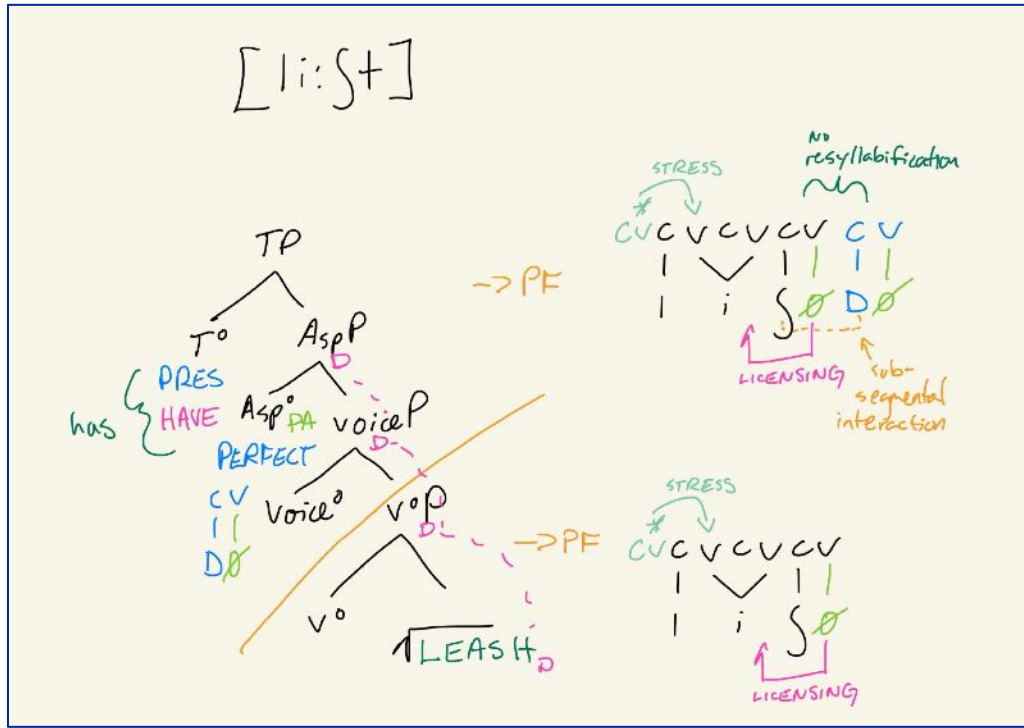 [li:ʃt]
TP
T° AspP
D
PRES
HAVE
has
Asp° PA voiceP
D
PERFECT
C V
D ø
Voice° v°P
D
v° √LEASH D
-> PF
STRESS
NO
resyllabification
*
C V C V C V C V C V
l i ʃ ø D ø
LICENSING
sub-
segmental
interaction
-> PF
STRESS
*
C V C V C V C V
l i ʃ ø
LICENSING